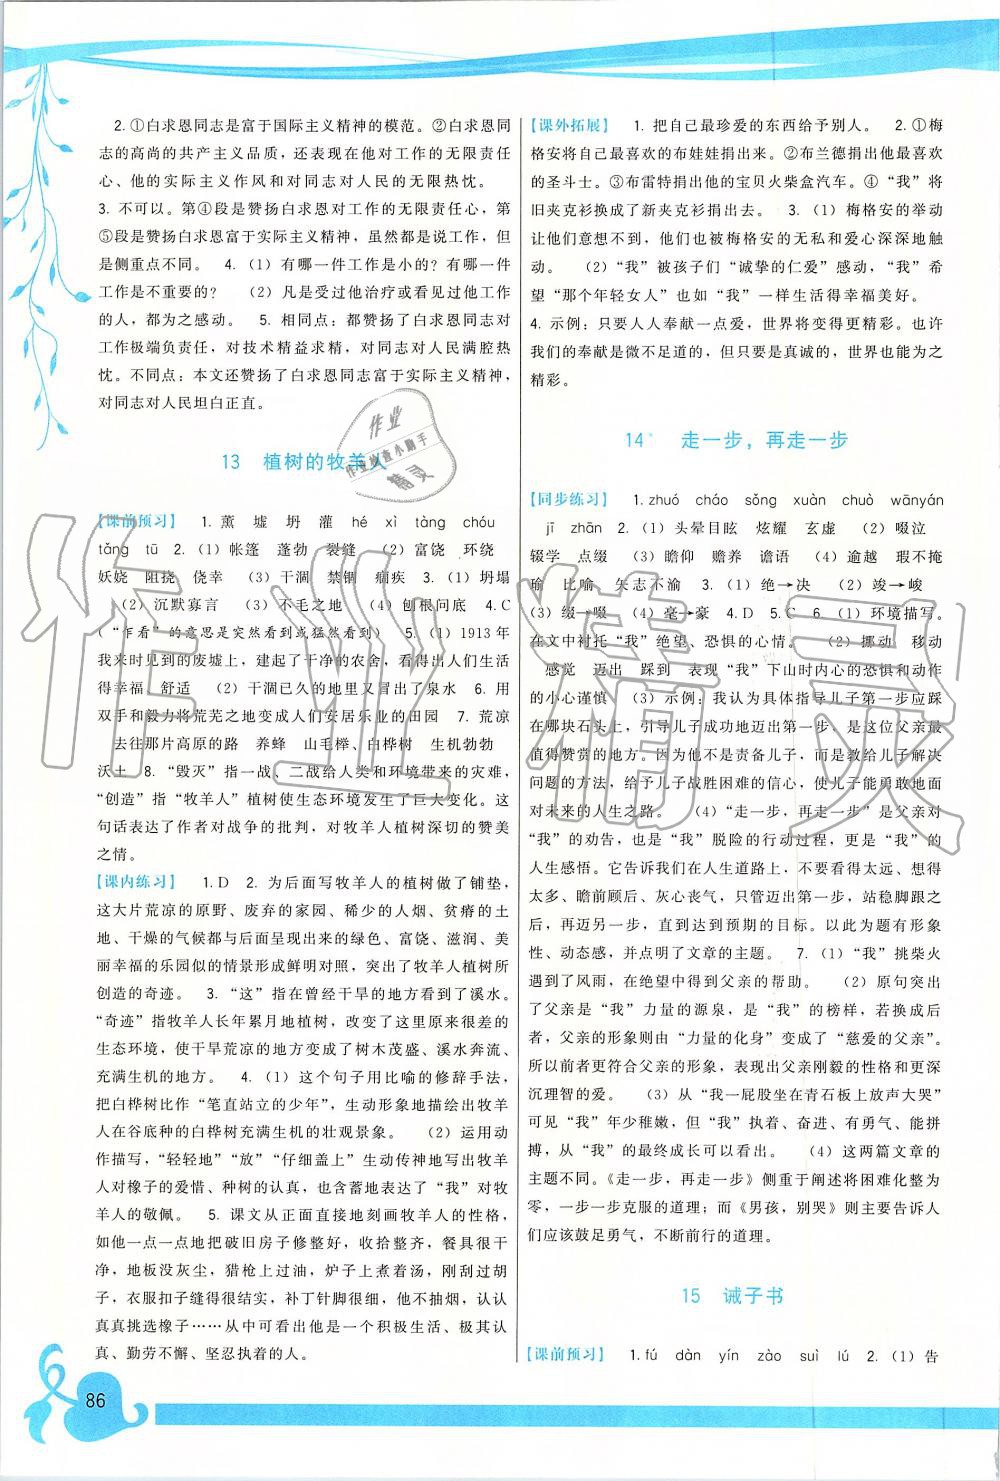 2. ①白求恩同志是富于国际主义精神的模范。②白求恩同
志的高尚的共产主义品质，还表现在他对工作的无限责任
心、他的实际主义作风和对同志对人民的无限热忱。
3. 不可以。第④段是赞扬白求恩对工作的无限责任心，第
⑤段是赞扬白求恩富于实际主义精神，虽然都是说工作，但
是侧重点不同。 4.（1）有哪一件工作是小的？有哪一件
工作是不重要的？ （2）凡是受过他治疗或看见过他工作
的人，都为之感动。 5. 相同点：都赞扬了白求恩同志对
工作极端负责任，对技术精益求精，对同志对人民满腔热忱。
不同点：本文还赞扬了白求恩同志富于实际主义精神，
对同志对人民坦白正直。
13 植树的牧羊人
【课前预习】 1. 薰 墟 坍 灌 hé xì tàng chóu
tǎng tū 2.（1）帐篷 蓬勃 裂缝 （2）富饶 环绕
妖娆 阻挠 侥幸 （3）干涸 禁锢 痼疾 3.（1）坍塌
（2）沉默寡言 （3）不毛之地 （4）刨根问底 4.C
（“乍看”的意思是突然看到或猛然看到） 5.（1）1913年
我来时见到的废墟上，建起了干净的农舍，看得出人们生活
得幸福 舒适 （2）干涸已久的地里又冒出了泉水 6. 用
双手和毅力将荒芜之地变成人们安居乐业的田园 7. 荒凉
去往那片高原的路 养蜂 山毛榉、白桦树 生机勃勃
沃土 8. “毁灭”指一战、二战给人类和环境带来的灾难，
“创造”指“牧羊人”植树使生态环境发生了巨大变化。这
句话表达了作者对战争的批判，对牧羊人植树深切的赞美
之情。
【课内练习】 1.D 2. 为后面写牧羊人的植树做了铺垫，
这大片荒凉的原野、废弃的家园、稀少的人烟、贫瘠的土
地、干燥的气候都与后面呈现出来的绿色、富饶、滋润、美
丽幸福的乐园似的情景形成鲜明对照，突出了牧羊人植树所
创造的奇迹。 3. “这”指在曾经干旱的地方看到了溪水。
“奇迹”指牧羊人长年累月地植树，改变了这里原来很差的
生态环境，使干旱荒凉的地方变成了树木茂盛、溪水奔流、
充满生机的地方。 4.（1）这个句子用比喻的修辞手法，
把白桦树比作“笔直站立的少年”，生动形象地描绘出牧羊
人在谷底种的白桦树充满生机的壮观景象。 （2）运用动
作描写，“轻轻地”“放”“仔细盖上”生动传神地写出牧羊
人对橡子的爱惜、种树的认真，也含蓄地表达了“我”对牧
羊人的敬佩。 5. 课文从正面直接地刻画牧羊人的性格，
如他一点一点地把破旧房子修整好，收拾整齐，餐具很干
净，地板没灰尘，猎枪上过油，炉子上煮着汤，刚刮过胡
子，衣服扣子缝得很结实，补丁针脚很细，他不抽烟，认认
真真挑选橡子……从中可看出他是一个积极生活、极其认
真、勤劳不懈、坚忍执着的人。
【课外拓展】 1. 把自己最珍爱的东西给予别人。 2. ①梅
格安将自己最喜欢的布娃娃捐出来。②布兰德捐出他最喜欢
的圣斗士。③布雷特捐出他的宝贝火柴盒汽车。④“我”将
旧夹克衫换成了新夹克衫捐出去。 3.（1）梅格安的举动
让他们意想不到，他们也被梅格安的无私和爱心深深地触
动。 （2）“我”被孩子们“诚挚的仁爱”感动，“我”希
望“那个年轻女人”也如“我”一样生活得幸福美好。
4. 示例：只要人人奉献一点爱，世界将变得更精彩。也许
我们的奉献是微不足道的，但只要是真诚的，世界也能为之
精彩。
14 走一步，再走一步
【同步练习】 1. zhuó cháo sǒng xuàn chuò wānyán
jī zhān 2.（1）头晕目眩 炫耀 玄虚 （2）啜泣
辍学 点缀 （3）瞻仰 赡养 谵语 （4）逾越 瑕不掩
瑜 比喻 矢志不渝 3.（1）绝→决 （2）竣→峻
（3）缀→啜 （4）毫→豪 4.D 5.C 6.（1）环境描写。
在文中衬托“我”绝望、恐惧的心情。 （2）挪动 移动
感觉 迈出 踩到 表现“我”下山时内心的恐惧和动作
的小心谨慎 （3）示例：我认为具体指导儿子第一步应踩
在哪块石头上，引导儿子成功地迈出第一步，是这位父亲最
值得赞赏的地方。因为他不是责备儿子，而是教给儿子解决
问题的方法，给予儿子战胜困难的信心，使儿子能勇敢地面
对未来的人生之路。 （4）“走一步，再走一步”是父亲对
“我”的劝告，也是“我”脱险的行动过程，更是“我”的
人生感悟。它告诉我们在人生道路上，不要看得太远、想得
太多、瞻前顾后、灰心丧气，只管迈出第一步，站稳脚跟之
后，再迈另一步，直到达到预期的目标。以此为题有形象
性、动态感，并点明了文章的主题。 7.（1）“我”挑柴火
遇到了风雨，在绝望中得到父亲的帮助。 （2）原句突出
了父亲是“我”力量的源泉，是“我”的榜样，若换成后
者，父亲的形象则由“力量的化身”变成了“慈爱的父亲”。
所以前者更符合父亲的形象，表现出父亲刚毅的性格和更深
沉理智的爱。 （3）从“我一屁股坐在青石板上放声大哭”
可见“我”年少稚嫩，但“我”执着、奋进、有勇气、能拼
搏，从“我”的最终成长可以看出。 （4）这两篇文章的
主题不同。《走一步，再走一步》侧重于阐述将困难化整为
零，一步一步克服的道理；而《男孩，别哭》则主要告诉人
们应该鼓足勇气，不断前行的道理。
15 诫子书
【课前预习】 1. fú dàn yín zào suì lú 2.（1）告
86
作业
作业检查小助手
精灵
作业精灵